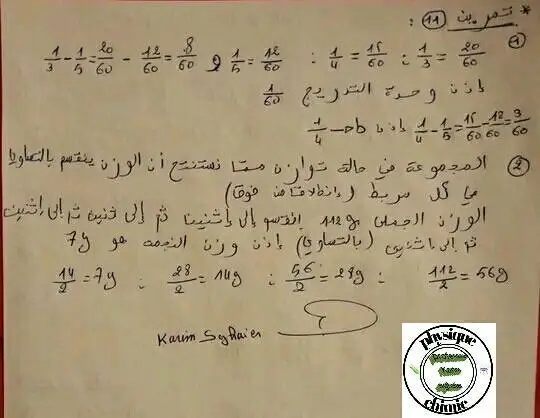 * تمرين 11 :
1) 1/3 = 20/60 ; 1/4 = 15/60 ; 1/5 = 12/60 و 1/3 - 1/5 = 20/60 - 12/60 = 8/60
إذن وحدة التدريج 1/60
1/4 - 1/5 = 15/60 - 12/60 = 3/60 إذن 1/4
2) المجموعة في حالة توازن مما نستنتج أن الوزن ينقسم بالتساوي
في كل مربط (إنطلاقا من فوق)
الوزن الجملي 112g ينقسم إلى إثنين ثم إلى ثنين ثم إلى إثنين
ثم إلى إثنين (بالتساوي) إذن وزن النجمة هو 7g
112/2 = 56g ; 56/2 = 28g ; 28/2 = 14g ; 14/2 = 7g
Karim
physique
chimie